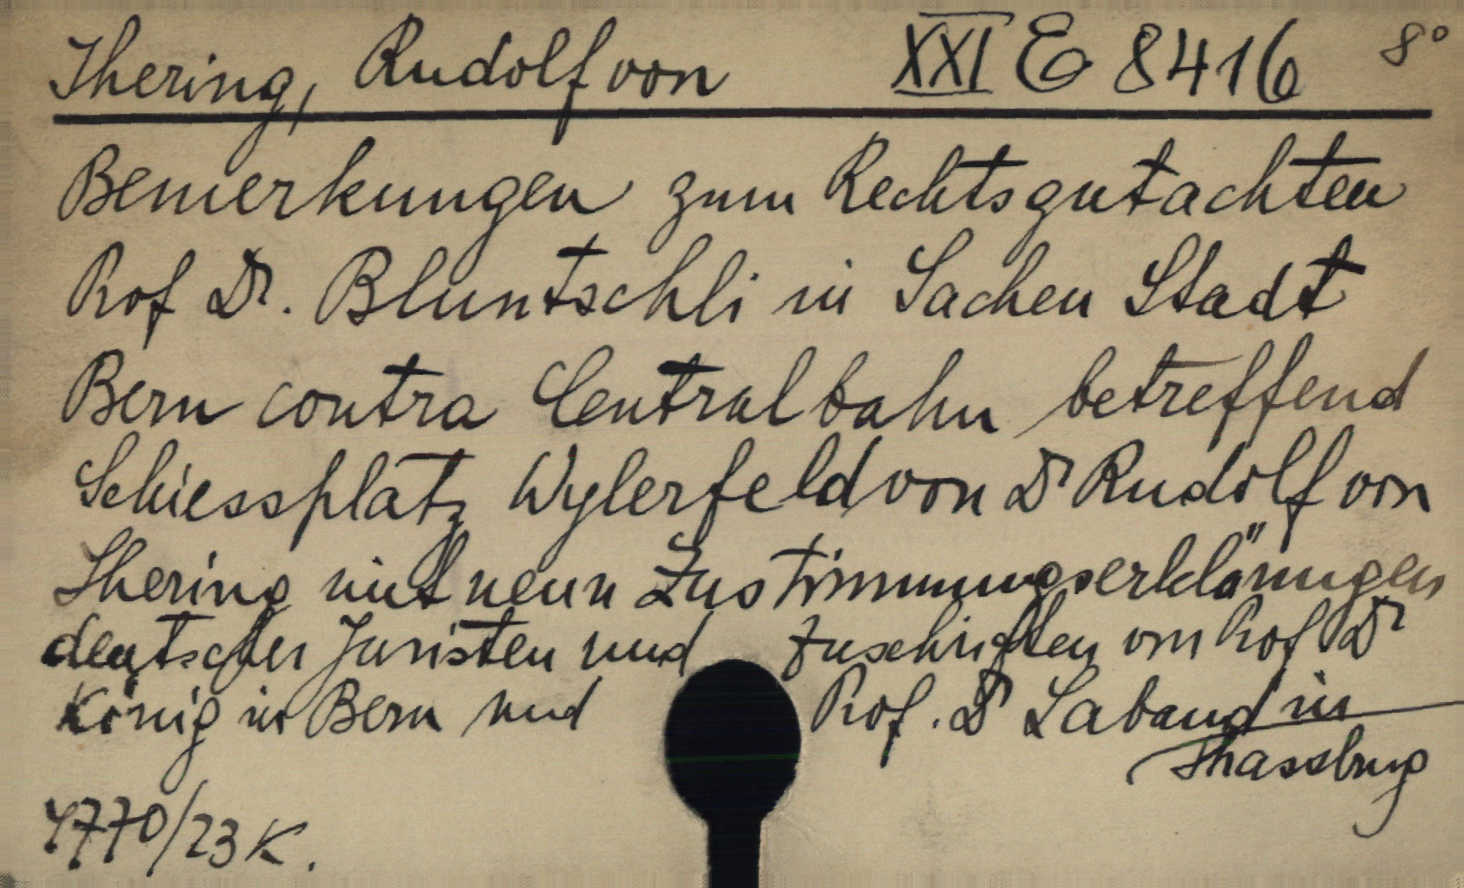 Ihering, Rudolf von XXI E 8416 8°
Bemerkungen zum Rechtsgutachten
Prof Dr. Bluntschli in Sachen Stadt
Bern contra Centralbahn betreffend
Schiessplatz Wylerfeld von Dr Rudolf von
Ihering mit neun Zustimmungserklärungen
deutscher Juristen und Zuschriften von Prof Dr
König in Bern und Prof. Dr Laband in
Strassburg
4770/23 K.